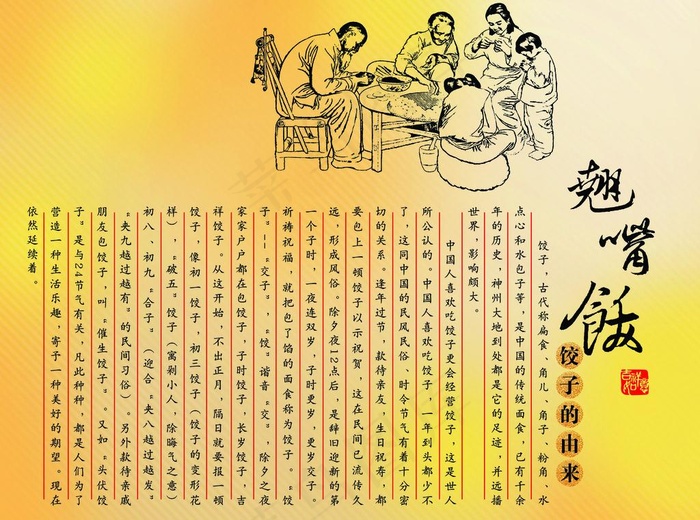 翘嘴
饺子的由来
饺子，古代称扁食、角儿、角子、粉角、水
点心和水包子等，是中国的传统面食，已有千余
年的历史，神州大地到处都是它的足迹，并远播
世界，影响颇大。
中国人喜欢吃饺子更会经营饺子，这是世人
所公认的。中国人喜欢吃饺子，一年到头都少不
了，这同中国的民风民俗、时令节气有着十分密
切的关系。逢年过节，款待亲友，生日祝寿，都
要包上一顿饺子以示祝贺，这在民间已流传久
远，形成风俗。除夕夜12点后，是辞旧迎新的第
一个子时，一夜连双岁，子时更岁，更岁交子。
祈祷祝福，就把包了馅的面食称为饺子。“饺
子”——“交子”，“饺”谐音“交”，除夕之夜
家家户户都在包饺子，子时饺子，长岁饺子，吉
祥饺子。从这开始，不出正月，隔日就要报一顿
饺子，像初一饺子，初三饺子（饺子的变形花
样），“破五”饺子（寓剁小人，除晦气之意）
初八、初九“合子”（迎合“夹八越过越发”
“夹九越过越有”的民间习俗）。另外款待亲戚
朋友包饺子，叫“催生饺子”。又如“头伏饺
子”是与24节气有关，凡此种种，都是人们为了
营造一种生活乐趣，寄予一种美好的期望。现在
依然延续着。